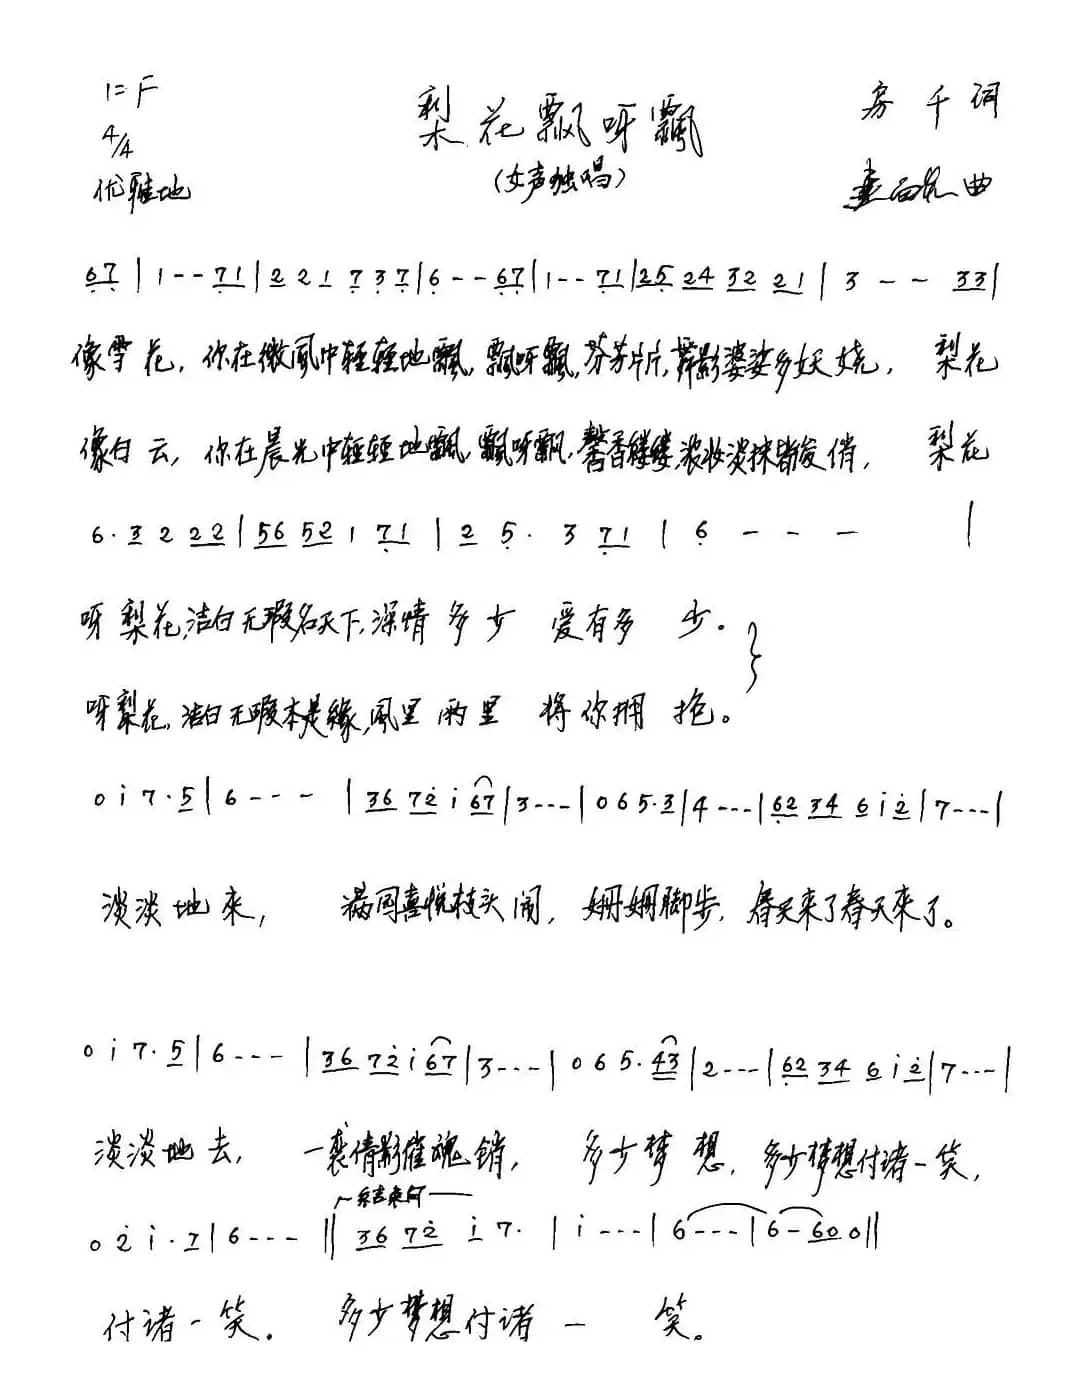 1=F
4/4
优雅地
梨花飘呀飘
(女声独唱)
房千词
曲
67 | 1 - - 71 | 2 2 1 7 3 7 | 6 - - 67 | 1 - - 71 | 25 24 32 21 | 3 - - 33 |
像雪花，你在微风中轻轻地飘，飘呀飘，芬芳片片，舞影婆娑多妖娆，梨花
像白云，你在晨光中轻轻地飘，飘呀飘，馨香缕缕浓妆淡抹皆俊俏，梨花
6· 3 2 22 | 56 52 1 71 | 2 5· 3 71 | 6 - - - |
呀梨花，洁白无瑕名天下，深情多少爱有多少。
呀梨花，洁白无瑕本是缘，风里雨里将你拥抱。
0 i 7· 5 | 6 - - - | 36 72 i 67 | 3 - - - | 0 6 5· 3 | 4 - - - | 62 34 6 i 2 | 7 - - - |
淡淡地来，满园喜悦枝头闹，姗姗脚步，春天来了春天來了。
0 i 7· 5 | 6 - - - | 36 72 i 67 | 3 - - - | 0 6 5· 43 | 2 - - - | 62 34 6 i 2 | 7 - - - |
淡淡地去，一袭倩影催魂销，多少梦想，多少梦想付诸一笑，
结束句
0 2 i· 7 | 6 - - - || 36 72 i 7· | i - - - | 6 - - - | 6 - 60 0 ||
付诸一笑。多少梦想付诸一笑。